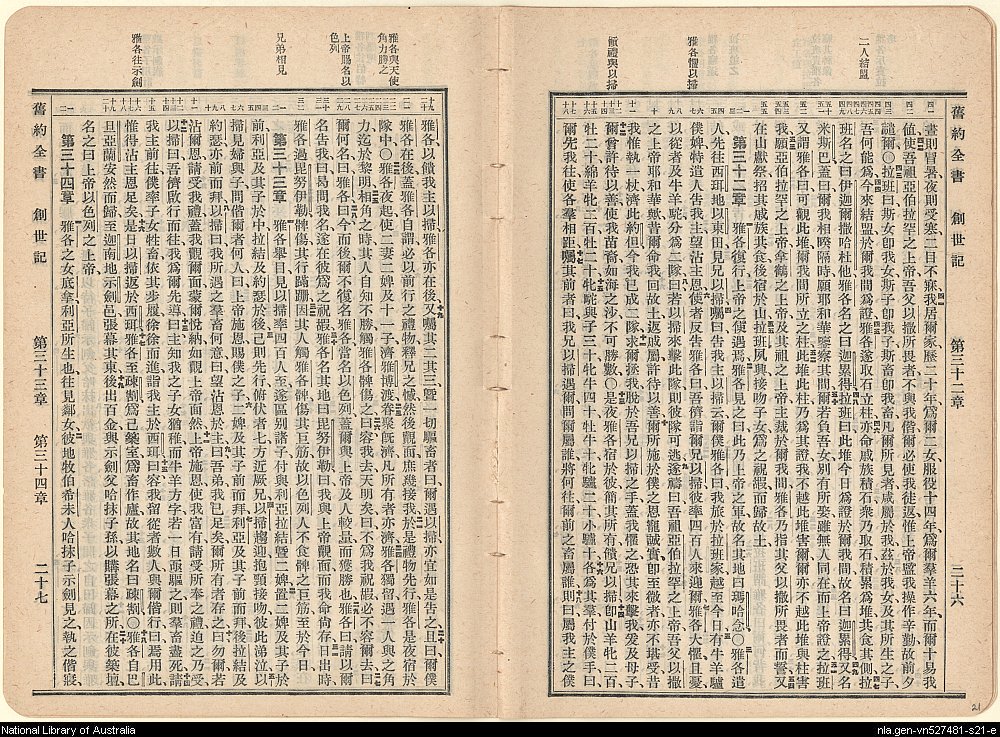 舊約全書　創世記　第三十二章　二十六
二人結盟
雅各懼以掃
餽禮與以掃
晝則冒暑夜則受寒二目不寐我居爾家歷二十年爲爾二女服役十四年爲爾羣羊六年而爾十易我
値使吾祖亞伯拉罕之上帝吾父以撒所畏者不與我偕爾必使我徒返惟上帝監我操作辛勤故前夕
譴爾〇拉班曰斯女卽我女斯子卽我子斯畜卽我畜凡爾所見者咸屬於我茲於我女及其所生之子
吾何能爲今來結盟於爾我間爲證雅各遂取石立柱亦命戚族積石衆乃取石積累爲堆共食其側拉
班名之曰伊迦爾撒哈杜他雅各名之曰迦累得拉班曰此堆今日爲證於爾我間故名曰迦累得又名
米斯巴蓋曰爾我相暌隔時願耶和華鑒察其間爾若負吾女別有所娶雖無人同在而上帝證之拉班
又謂雅各曰可觀此堆爾我間所立之柱此堆此柱乃爲其證我不越此堆害爾爾亦不越此堆與柱害
我願亞伯拉罕之上帝拿鶴之上帝及其祖之上帝裁於爾我間雅各乃指其父以撒所畏者而誓又
在山獻祭招其戚族共食後宿於山拉班夙興接吻子女爲之祝嘏而歸故土
第三十二章　雅各復行上帝之使遇焉雅各見之曰此乃上帝之軍故名其地曰瑪哈念〇雅各遣
人先往西珥地以東田見兄以掃囑曰告我主以掃云爾僕雅各曰我旅於拉班家越至今日有牛羊驢
僕婢特遣人告我主望沾主恩使者反曰吾儕詣爾兄以掃彼率四百人來迎爾雅各大懼且憂
以從者及牛羊駝分爲二隊曰若以掃來擊此隊則彼隊可逃遂禱曰吾祖亞伯拉罕之上帝吾父以撒
之上帝耶和華歟昔爾命我回故土返戚屬許待以善所施於僕之恩寵誠實卽至微者亦不堪受昔
我惟執一杖濟此約但今我已成二隊求爾拯我脫於吾兄以掃之手蓋我懼之恐其來擊我爰及母子
爾嘗許待以善使我苗裔如海之沙不可勝數〇是夜雅各宿於彼簡其所有餽兄以掃卽山羊牝二百
牡二十綿羊牝二百牡二十牝駝與子三十牝牛四十牡牛十牝驢二十小驢十各爲其羣付於僕手曰
爾先我往使各羣相距囑其前者曰我兄以掃遇爾問爾屬誰將何往爾前之畜屬誰則曰屬我主之僕
雅各與天使角力勝之
上帝賜名以色列
兄弟相見
雅各往示劍
雅各以餽我主以掃雅各亦在後又囑其二其三暨一切驅畜者曰爾遇以掃亦宜如是告之且曰爾僕
雅各在後蓋雅各自謂必以前行之禮物釋兄之憾然後覿面而庶幾接我於是禮物先行雅各是夜宿於
隊中〇雅各夜起使二妻二婢及十一子濟雅博渡眷聚旣濟凡所有者亦濟雅各獨留遇一人與之角
力迄於黎明相角之時其人自知不勝觸雅各髀傷之曰容我去天明矣曰不爲我祝嘏必不容爾去曰
爾何名曰雅各曰今而後爾不復名雅各當名以色列蓋爾與上帝及人較量而獲勝也雅各曰請以爾
名告我曰曷問我名遂在彼爲之祝嘏雅各名其地曰毘努伊勒曰我與上帝覿面而我命尙存日出時
雅各過毘努伊勒髀傷其行蹣跚因其人觸雅各髀傷其巨筋故以色列人不食髀之巨筋至於今日
第三十三章　雅各舉目見以掃率四百人至遂區別諸子付與利亞拉結暨二婢置二婢及其子於
前利亞及其子於中拉結及約瑟於後己則先行俯伏者七方近厥兄以掃趨迎抱頸接吻彼此涕泣以
掃見婦與子問偕爾者何人曰上帝施恩賜僕之子二婢及其子前而拜利亞及其子前而拜後拉結及
約瑟亦前而拜以掃曰我所遇之羣畜何意曰望沾恩於主曰吾弟我已足爾所有者存之曰勿爾若
沾爾恩請受我禮蓋我覿爾面蒙爾悅納如覿上帝面然上帝施恩使我富有請受所奉之禮迫之乃受
以掃曰吾儕啟行而往我爲爾先導曰主知我之子女猶稚而牛羊方字若一日亟驅之則羣畜盡死請
我主前往僕率子女牲畜依其步履徐徐而進詣我主於西珥曰容我留從者數人與爾偕行曰焉用此
惟得沾主恩足矣是日以掃返於西珥雅各至疎割爲己築室爲畜作廬故以其地名曰疎割〇雅各自巴
旦亞蘭安然而歸至迦南地示劍邑張幕其東後出百金與示劍父哈抹子孫以購張幕之所在彼築壇
名之曰上帝以色列之上帝
第三十四章　雅各之女底拿利亞所生也往見鄰女彼地牧伯希未人哈抹子示劍見之執之偕寢
舊約全書　創世記　第三十三章　第三十四章　二十七
21
National Library of Australia
nla.gen-vn527481-s21-e